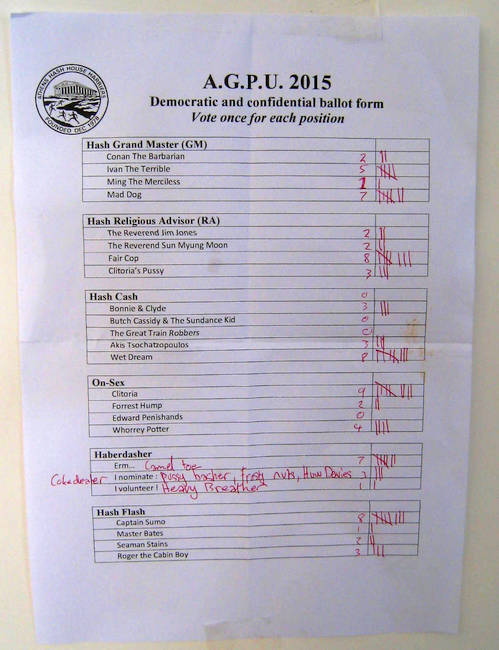 ATHENS HASH HOUSE HARRIERS
FOUNDED DEC 1978
A.G.P.U. 2015
Democratic and confidential ballot form
Vote once for each position
Hash Grand Master (GM)
Conan The Barbarian 2
Ivan The Terrible 5
Ming The Merciless 1
Mad Dog 7
Hash Religious Advisor (RA)
The Reverend Jim Jones 2
The Reverend Sun Myung Moon 2
Fair Cop 8
Clitoria's Pussy 3
Hash Cash 0
Bonnie & Clyde 3
Butch Cassidy & The Sundance Kid 0
The Great Train Robbers 0
Akis Tsochatzopoulos 3
Wet Dream 8
On-Sex
Clitoria 9
Forrest Hump 2
Edward Penishands 0
Whorrey Potter 4
Haberdasher
Erm... Camel toe 7
Cokedealer I nominate : Pussy basher, frosty nuts, Huw Davies 3
I volunteer ! Heavy Breather 1
Hash Flash
Captain Sumo 8
Master Bates 1
Seaman Stains 2
Roger the Cabin Boy 3